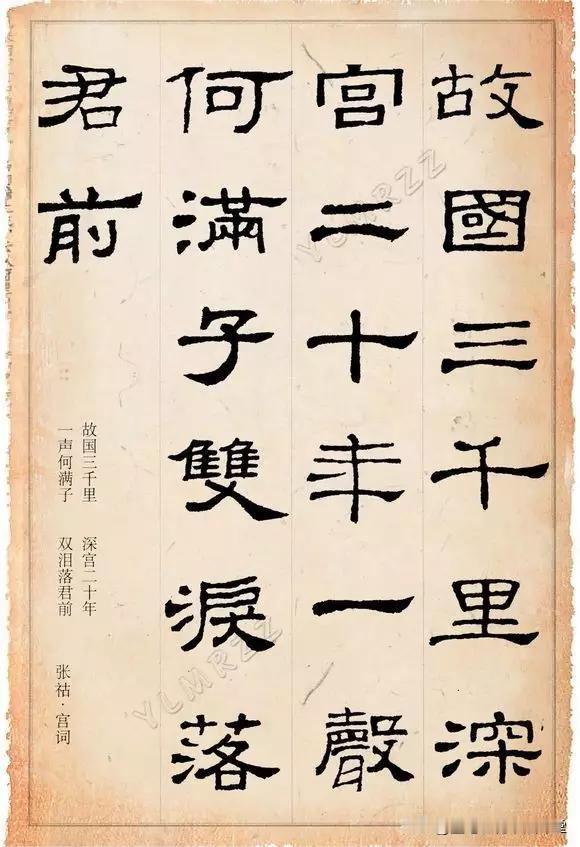 故國三千里深
宮二十年一聲
何滿子雙淚落
君前
故国三千里　深宫二十年
一声何满子　双泪落君前
张祜·宫词
YLMRZZ
YLMRZZ